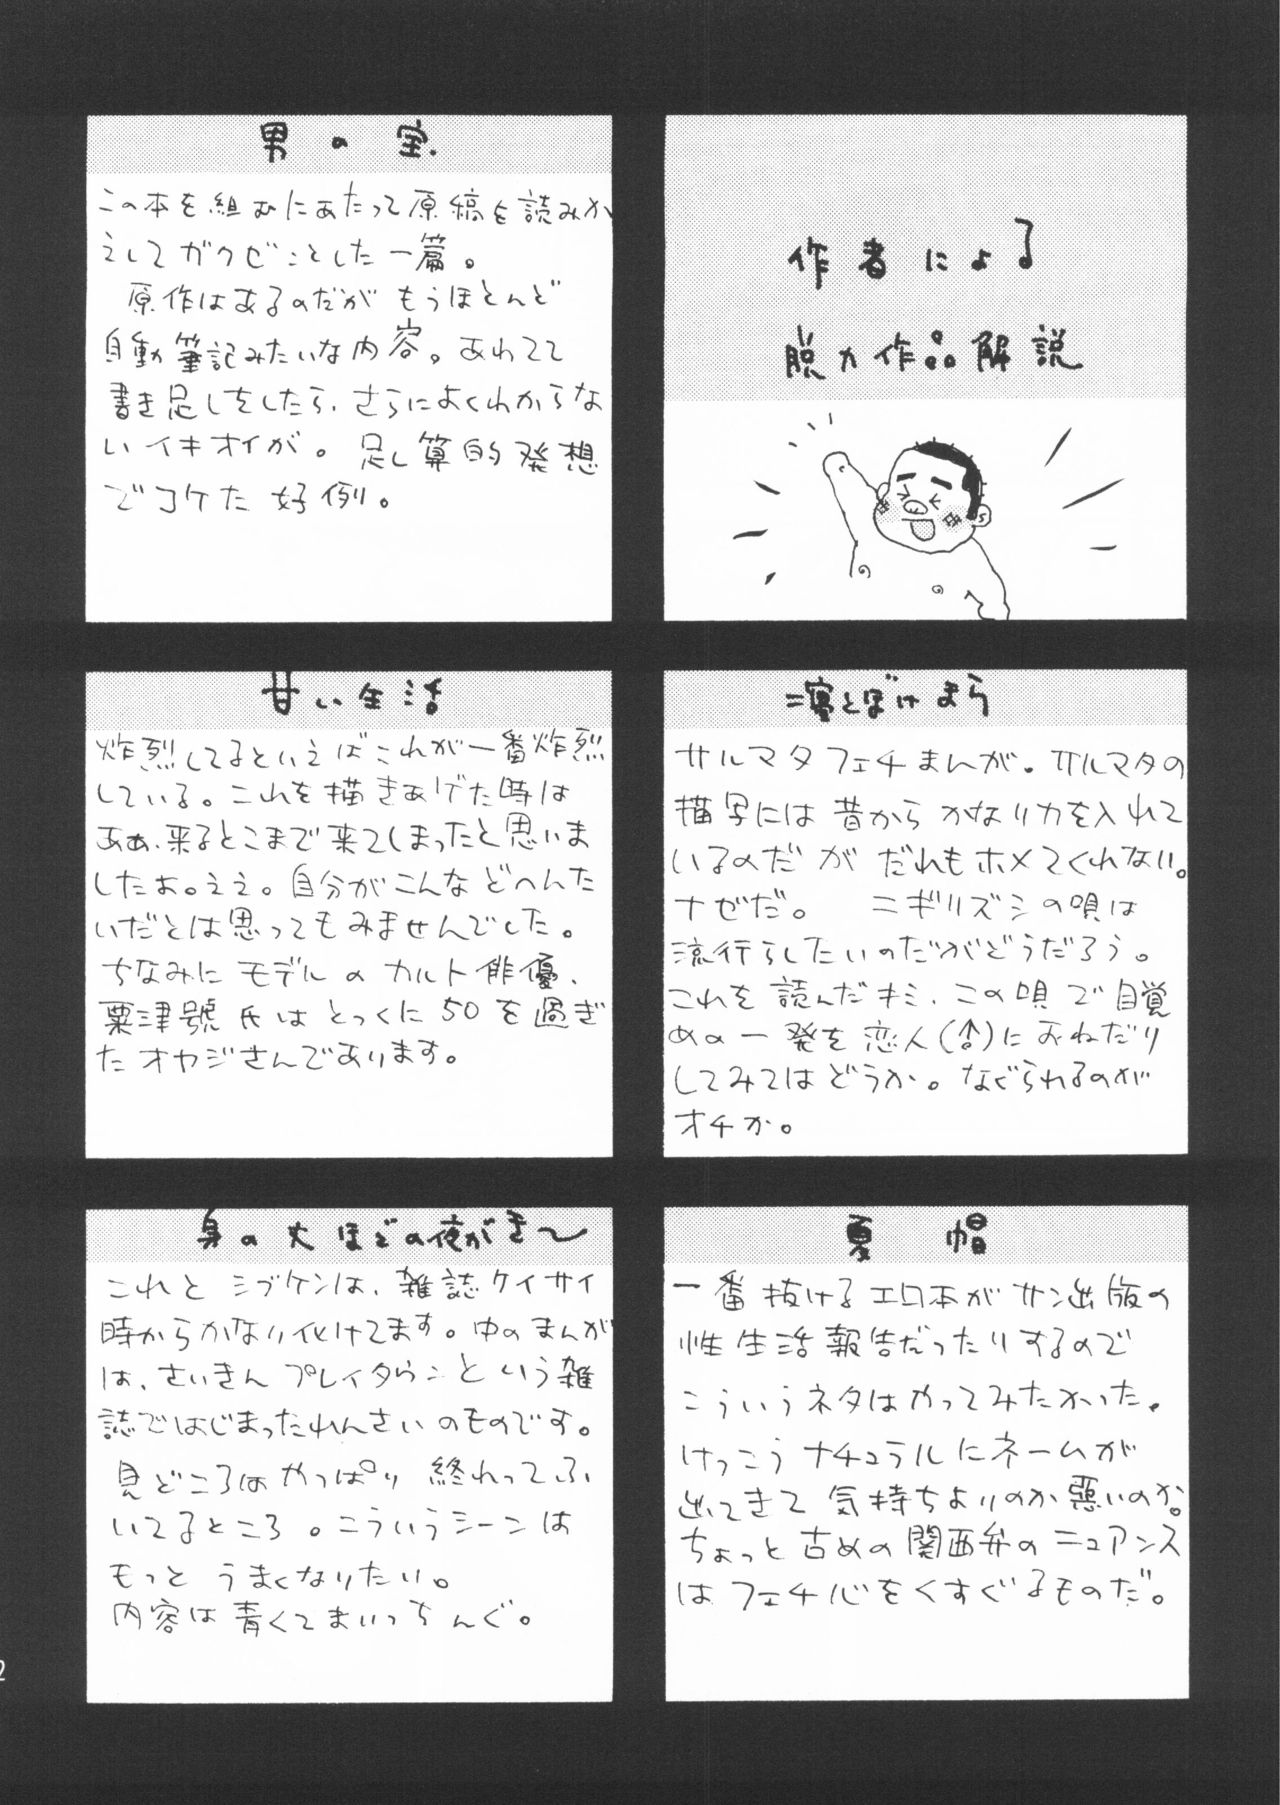 作者による
脱力作品解説
男の宝.
この本を組むにあたって原稿を読みか
えしてガクゼンとした一篇。
原作はあるのだが もうほとんど
自動筆記みたいな内容。あわてて
書き足しをしたら、さらによくわからな
いイキオイが。足し算的発想
でコケた好例。
寝とぼけまら
サルマタフェチまんが。サルマタの
描写には昔から かなり力を入れて
いるのだが だれもホメてくれない。
ナゼだ。 ニギリズシの唄は
流行らしたいのだがどうだろう。
これを読んだキミ、この唄で目覚
めの一発を恋人(♂)におねだり
してみてはどうか。なぐられるのが
オチか。
甘い生活
炸烈してるといえばこれが一番炸烈
している。これを描きあげた時は
ああ、来るとこまで来てしまったと思いま
したよ。ええ。自分がこんなどへんた
いだとは思ってもみませんでした。
ちなみに モデルの カルト俳優、
粟津號 氏は とっくに50を過ぎ
たオヤジさんであります。
夏帽
一番抜けるエロ本がサン出版の
性生活報告だったりするので
こういうネタはやってみたかった。
けっこう ナチュラルにネームが
出てきて 気持ちよいのか悪いのか。
ちょっと古めの関西弁のニュアンス
はフェチ心をくすぐるものだ。
身の丈ほどの夜がき〜
これと シブケンは、雑誌ケイサイ
時からかなり化けてます。中のまんが
は、さいきん プレイタウンという雑
誌ではじまったれんさいのものです。
見どころはやっぱり 終わってふ
いてるところ。こういうシーンは
もっと うまくなりたい。
内容は青くてまいっちんぐ。
2